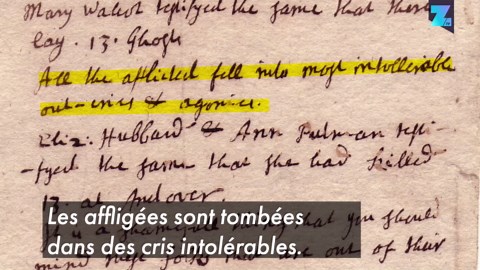 Mary Walcot testifyed the same that there
lay. 13. Ghosts
All the afflicted fell into most intollerable
out-cries & agonies.
Eliz: Hubbard & Ann Putman testi-
fyed the same that she had killed
13. at Andover.
It is a shamefull thing that you should
mind these folks that are out of their
Les affligées sont tombées
dans des cris intolérables.
Z